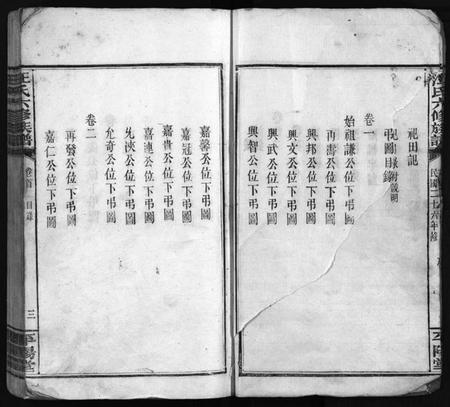 祀田記
卷一
弔圖目錄附說明
始祖謙公位下弔圖
再壽公位下弔圖
興邦公位下弔圖
興文公位下弔圖
興武公位下弔圖
興智公位下弔圖
嘉馨公位下弔圖
嘉冠公位下弔圖
嘉貴公位下弔圖
嘉連公位下弔圖
先淡公位下弔圖
允奇公位下弔圖
卷二
再發公位下弔圖
嘉仁公位下弔圖
汪氏六修族譜
卷首 目錄
三
平陽堂